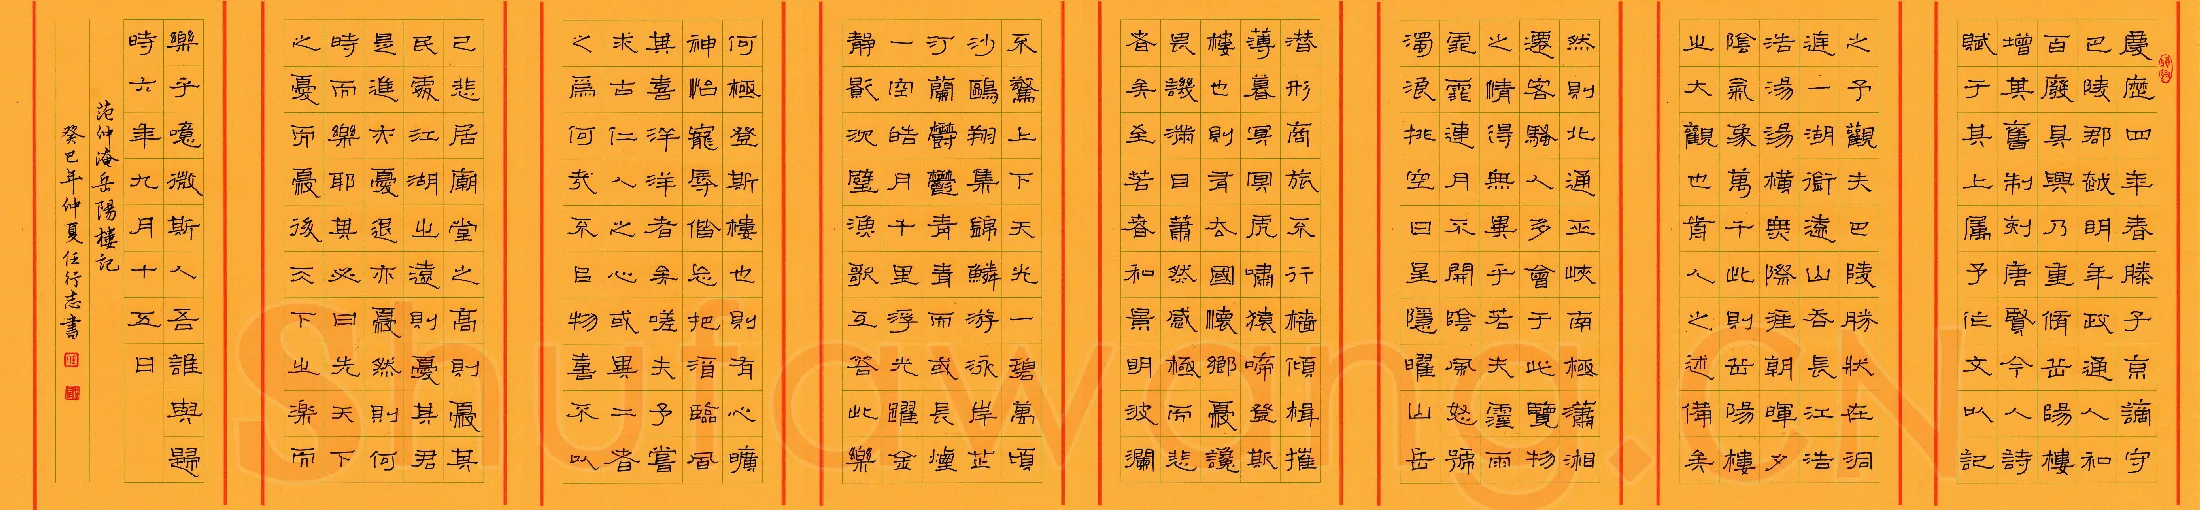 慶歷四年春滕子京謫守
巴陵郡越明年政通人和
百廢具興乃重脩岳陽樓
增其舊制刻唐賢今人詩
賦于其上属予作文以記
之予觀夫巴陵勝狀在洞
庭一湖銜遠山吞長江浩
浩湯湯橫無際涯朝暉夕
陰氣象萬千此則岳陽樓
之大觀也前人之述備矣
然則北通巫峽南極瀟湘
遷客騷人多會于此覽物
之情得無異乎若夫霪雨
霏霏連月不開陰風怒號
濁浪排空日星隱曜山岳
潛形商旅不行檣傾楫摧
薄暮冥冥虎嘯猿啼登斯
樓也則有去國懷鄉憂讒
畏譏滿目蕭然感極而悲
者矣至若春和景明波瀾
不驚上下天光一碧萬頃
沙鷗翔集錦鱗游泳岸芷
汀蘭鬱鬱青青而或長煙
一空皓月千里浮光躍金
靜影沉璧漁歌互答此樂
何極登斯樓也則有心曠
神怡寵辱偕忘把酒臨風
其喜洋洋者矣嗟夫予嘗
求古仁人之心或異二者
之爲何哉不以物喜不以
己悲居廟堂之高則憂其
民處江湖之遠則憂其君
是進亦憂退亦憂然則何
時而樂耶其必曰先天下
之憂而憂後天下之樂而
樂乎噫微斯人吾誰與歸
時六年九月十五日
范仲淹岳陽樓記
癸巳年仲夏任行志書
Shufawang.CN